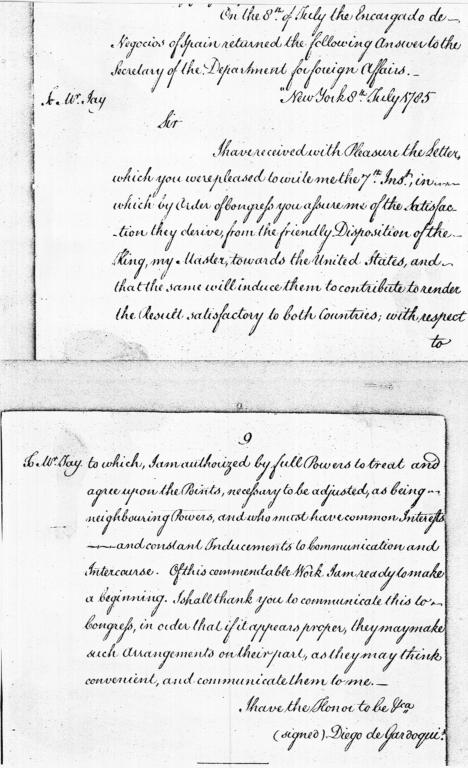 On the 8th. of July the Encargado de
Negocios of Spain returned the following Answer to the
Secretary of the Department for foreign Affairs. —
To Mr. Jay
"New York 8th. July 1785
Sir
I have received with Pleasure the Letter,
which you were pleased to write me the 7th. Inst., in
which by Order of Congress you assure me of the Satisfac-
-tion they derive, from the friendly Disposition of the
King, my Master, towards the United States, and
that the same will induce them to contribute to render
the Result satisfactory to both Countries; with respect
to
9
To Mr. Jay to which, I am authorized by full Powers to treat and
agree upon the Points, necessary to be adjusted, as being
neighbouring Powers, and who must have common Interests
—— and constant Inducements to Communication and
Intercourse. Of this commendable Work I am ready to make
a beginning. I shall thank you to communicate this to
Congress, in order that if it appears proper, they may make
such Arrangements on their part, as they may think
convenient, and communicate them to me. —
I have the Honor to be &ca
(signed). Diego de Gardoqui.